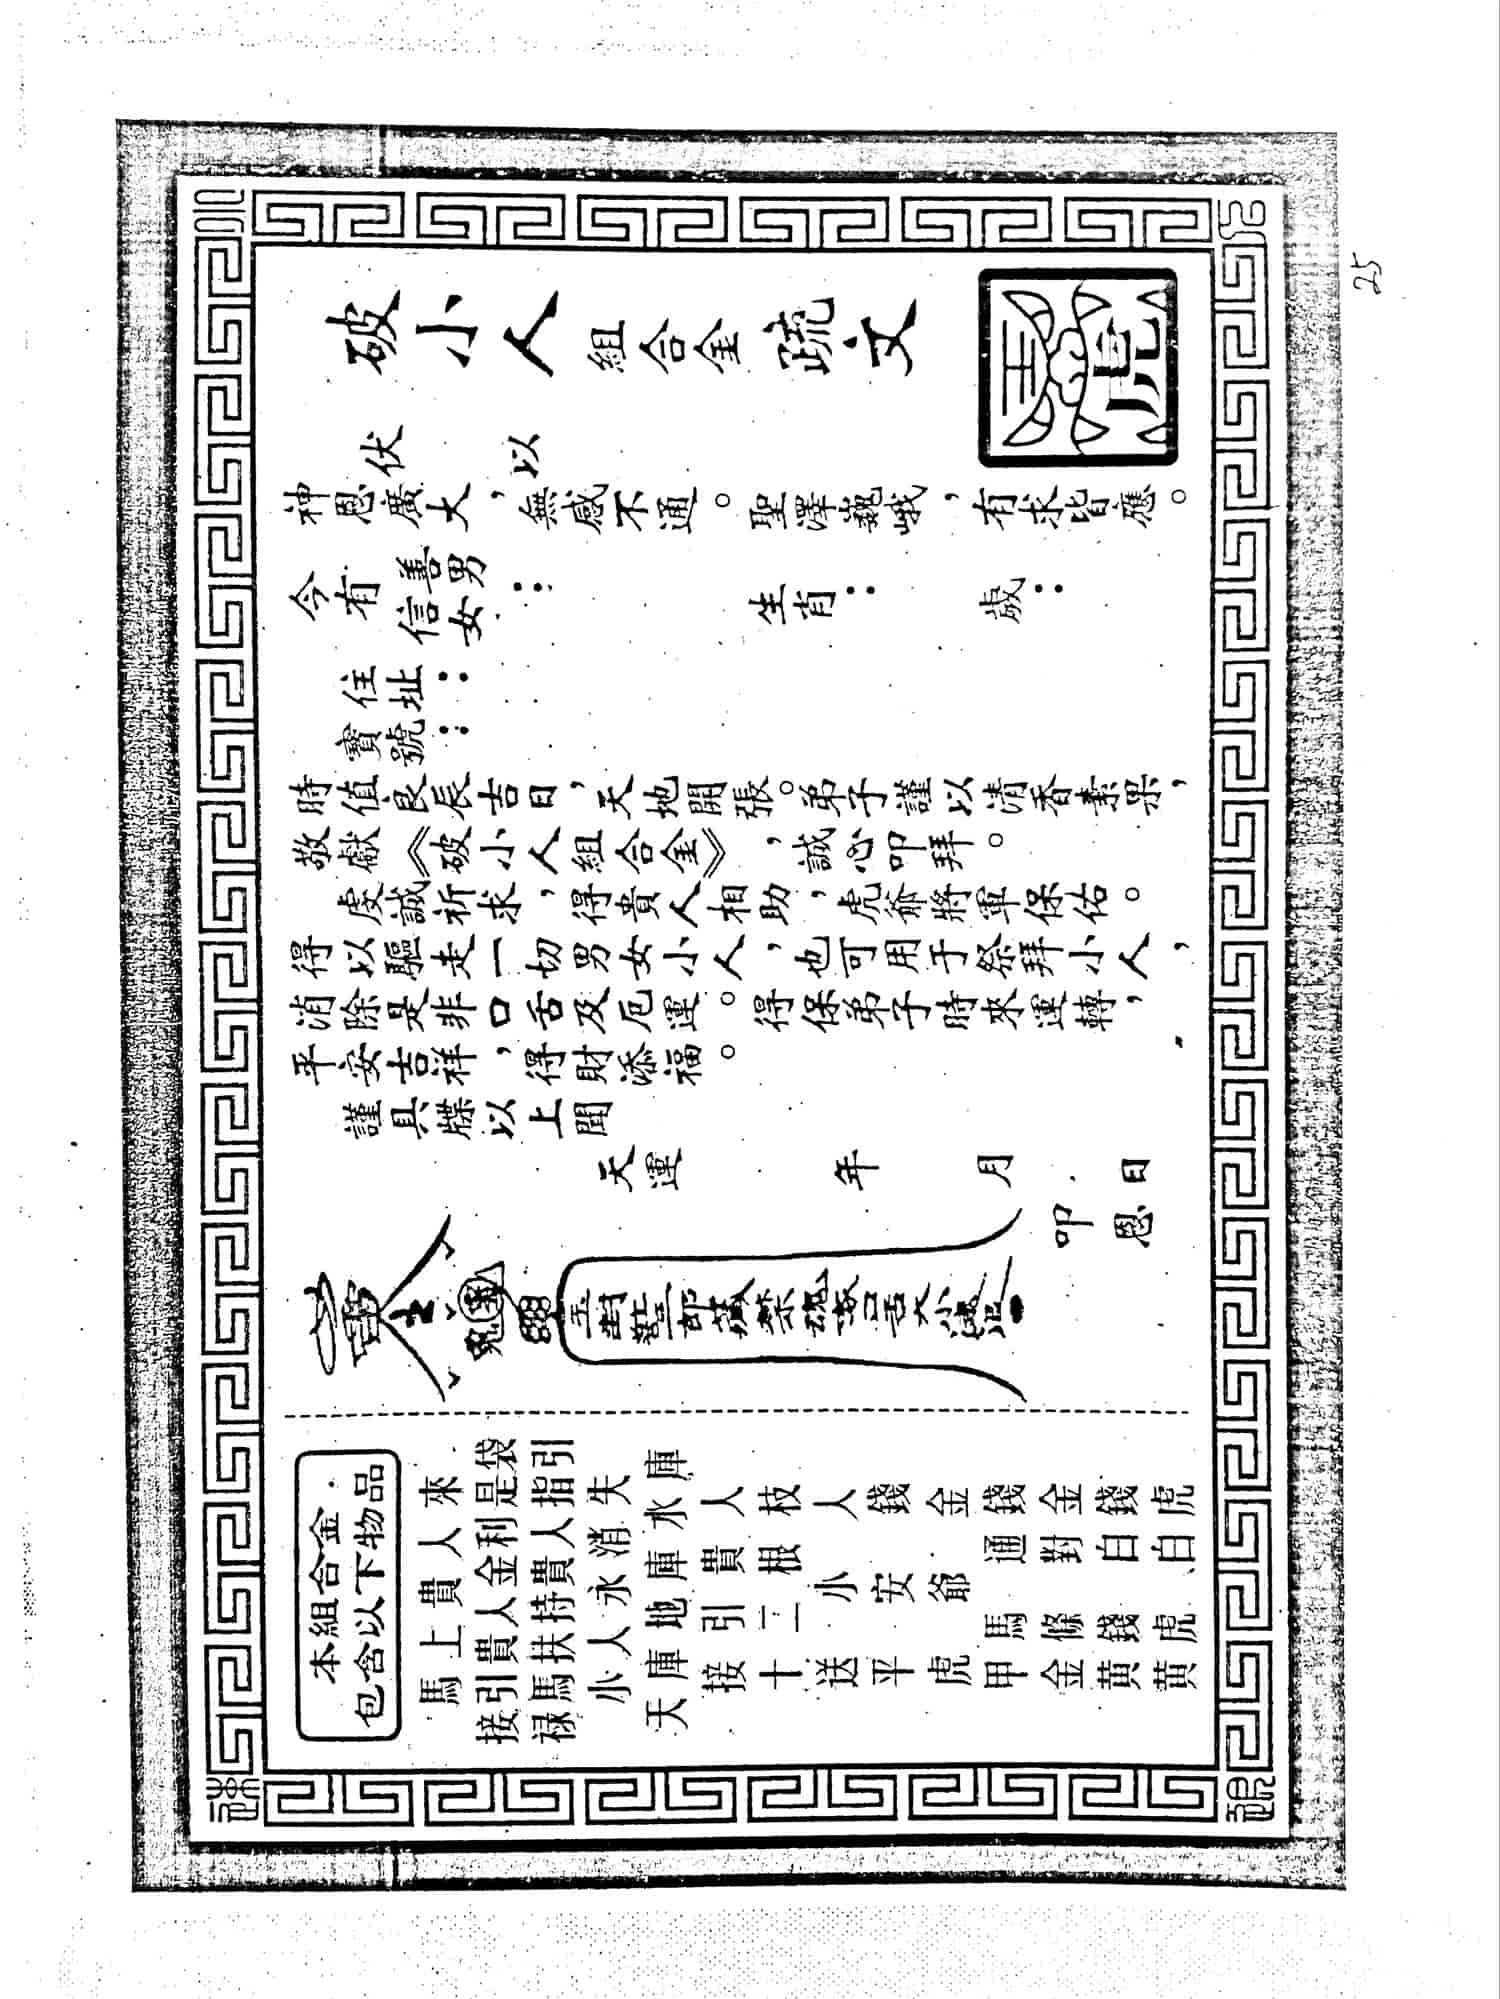 破小人組合金疏文
虎
伏以
神恩廣大，無感不通。聖澤巍峨，有求皆應。
今有信善女男： 生肖： 歲：
住址：
寶號：
時值良辰吉日，天地開張。弟子謹以清香素果，
敬獻《破小人組合金》，誠心叩拜。
虔誠祈求，得貴人相助，虎爺將軍保佑。
得以驅走一切男女小人，也可用于祭拜小人，
消除是非口舌及厄運。得保弟子時來運轉，
平安吉祥，得財添福。
謹具牒以上聞
天運 年 月 日
叩恩
本組合金
包含以下物品
馬上貴人來
接引貴人金利是袋
禄馬扶持貴人指引
小人永消失
天庫地庫水庫
接引貴人
十二根枝
送小人
平安錢
虎爺金
甲馬通錢
金條對金
黄錢白錢
黄虎、白虎
25